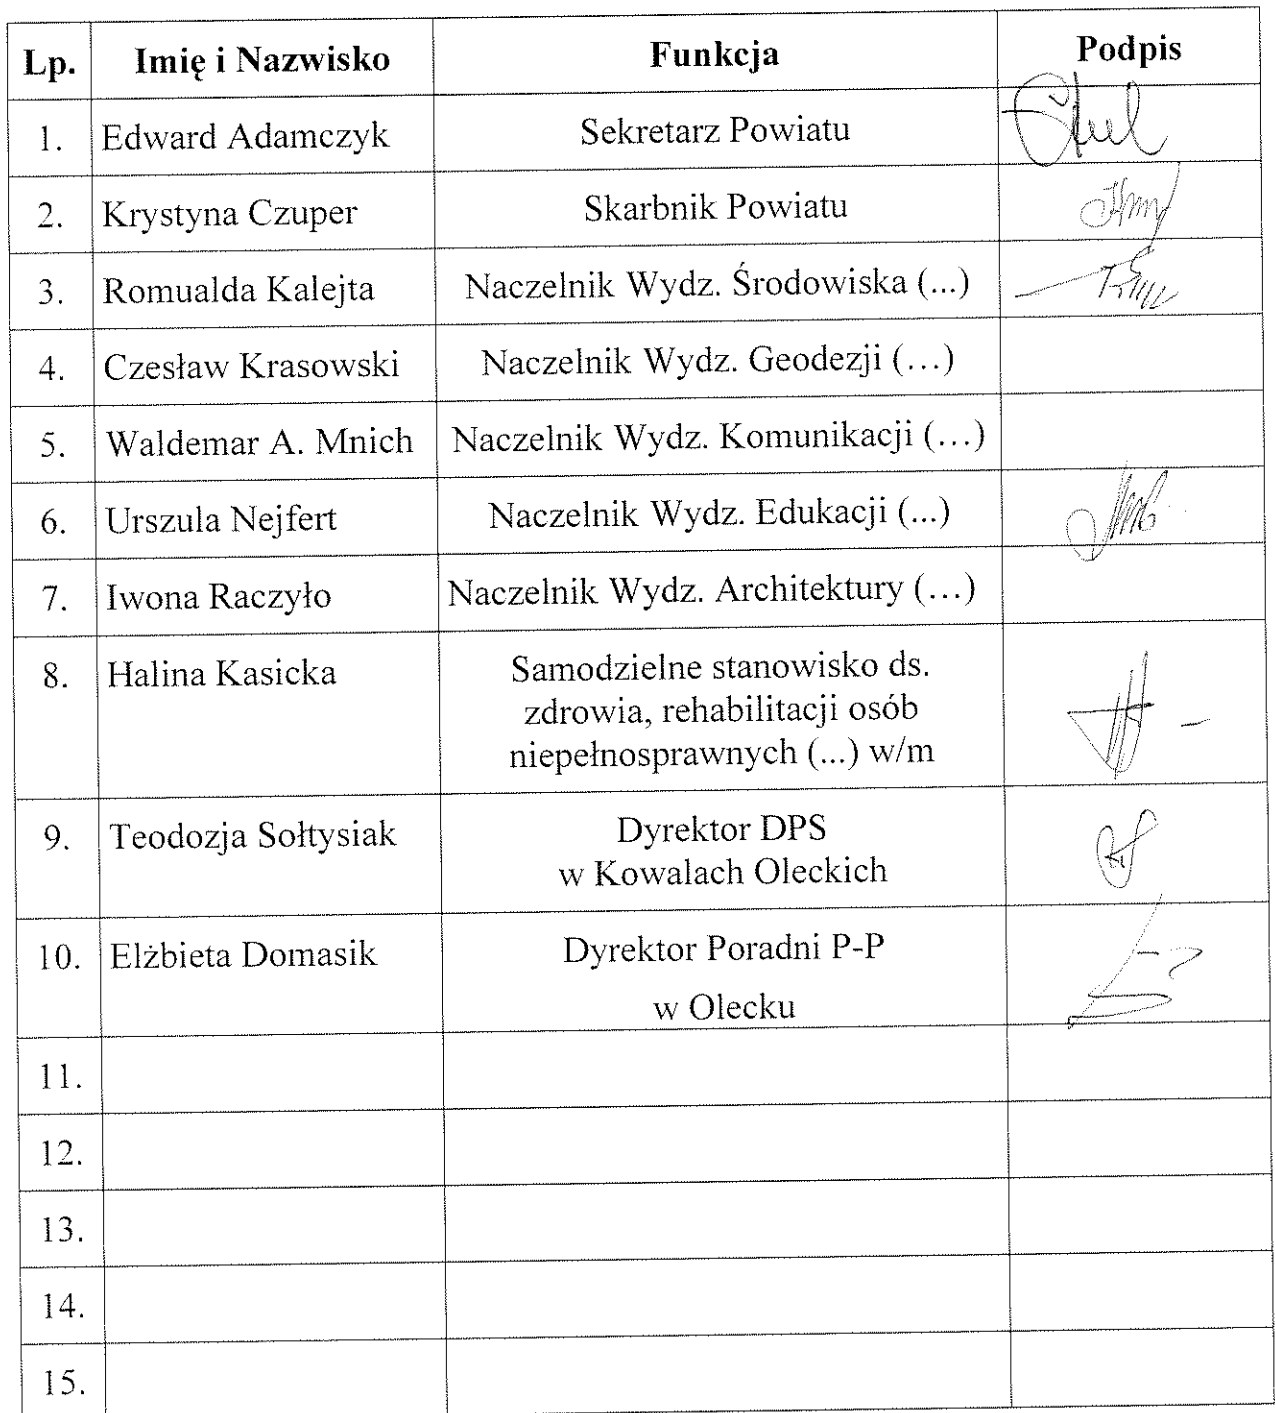 Lp. Imię i Nazwisko Funkcja Podpis
1. Edward Adamczyk Sekretarz Powiatu
2. Krystyna Czuper Skarbnik Powiatu
3. Romualda Kalejta Naczelnik Wydz. Środowiska (...)
4. Czesław Krasowski Naczelnik Wydz. Geodezji (…)
5. Waldemar A. Mnich Naczelnik Wydz. Komunikacji (…)
6. Urszula Nejfert Naczelnik Wydz. Edukacji (...)
7. Iwona Raczyło Naczelnik Wydz. Architektury (…)
8. Halina Kasicka Samodzielne stanowisko ds.
zdrowia, rehabilitacji osób
niepełnosprawnych (...) w/m
9. Teodozja Sołtysiak Dyrektor DPS
w Kowalach Oleckich
10. Elżbieta Domasik Dyrektor Poradni P-P
w Olecku
11.
12.
13.
14.
15.